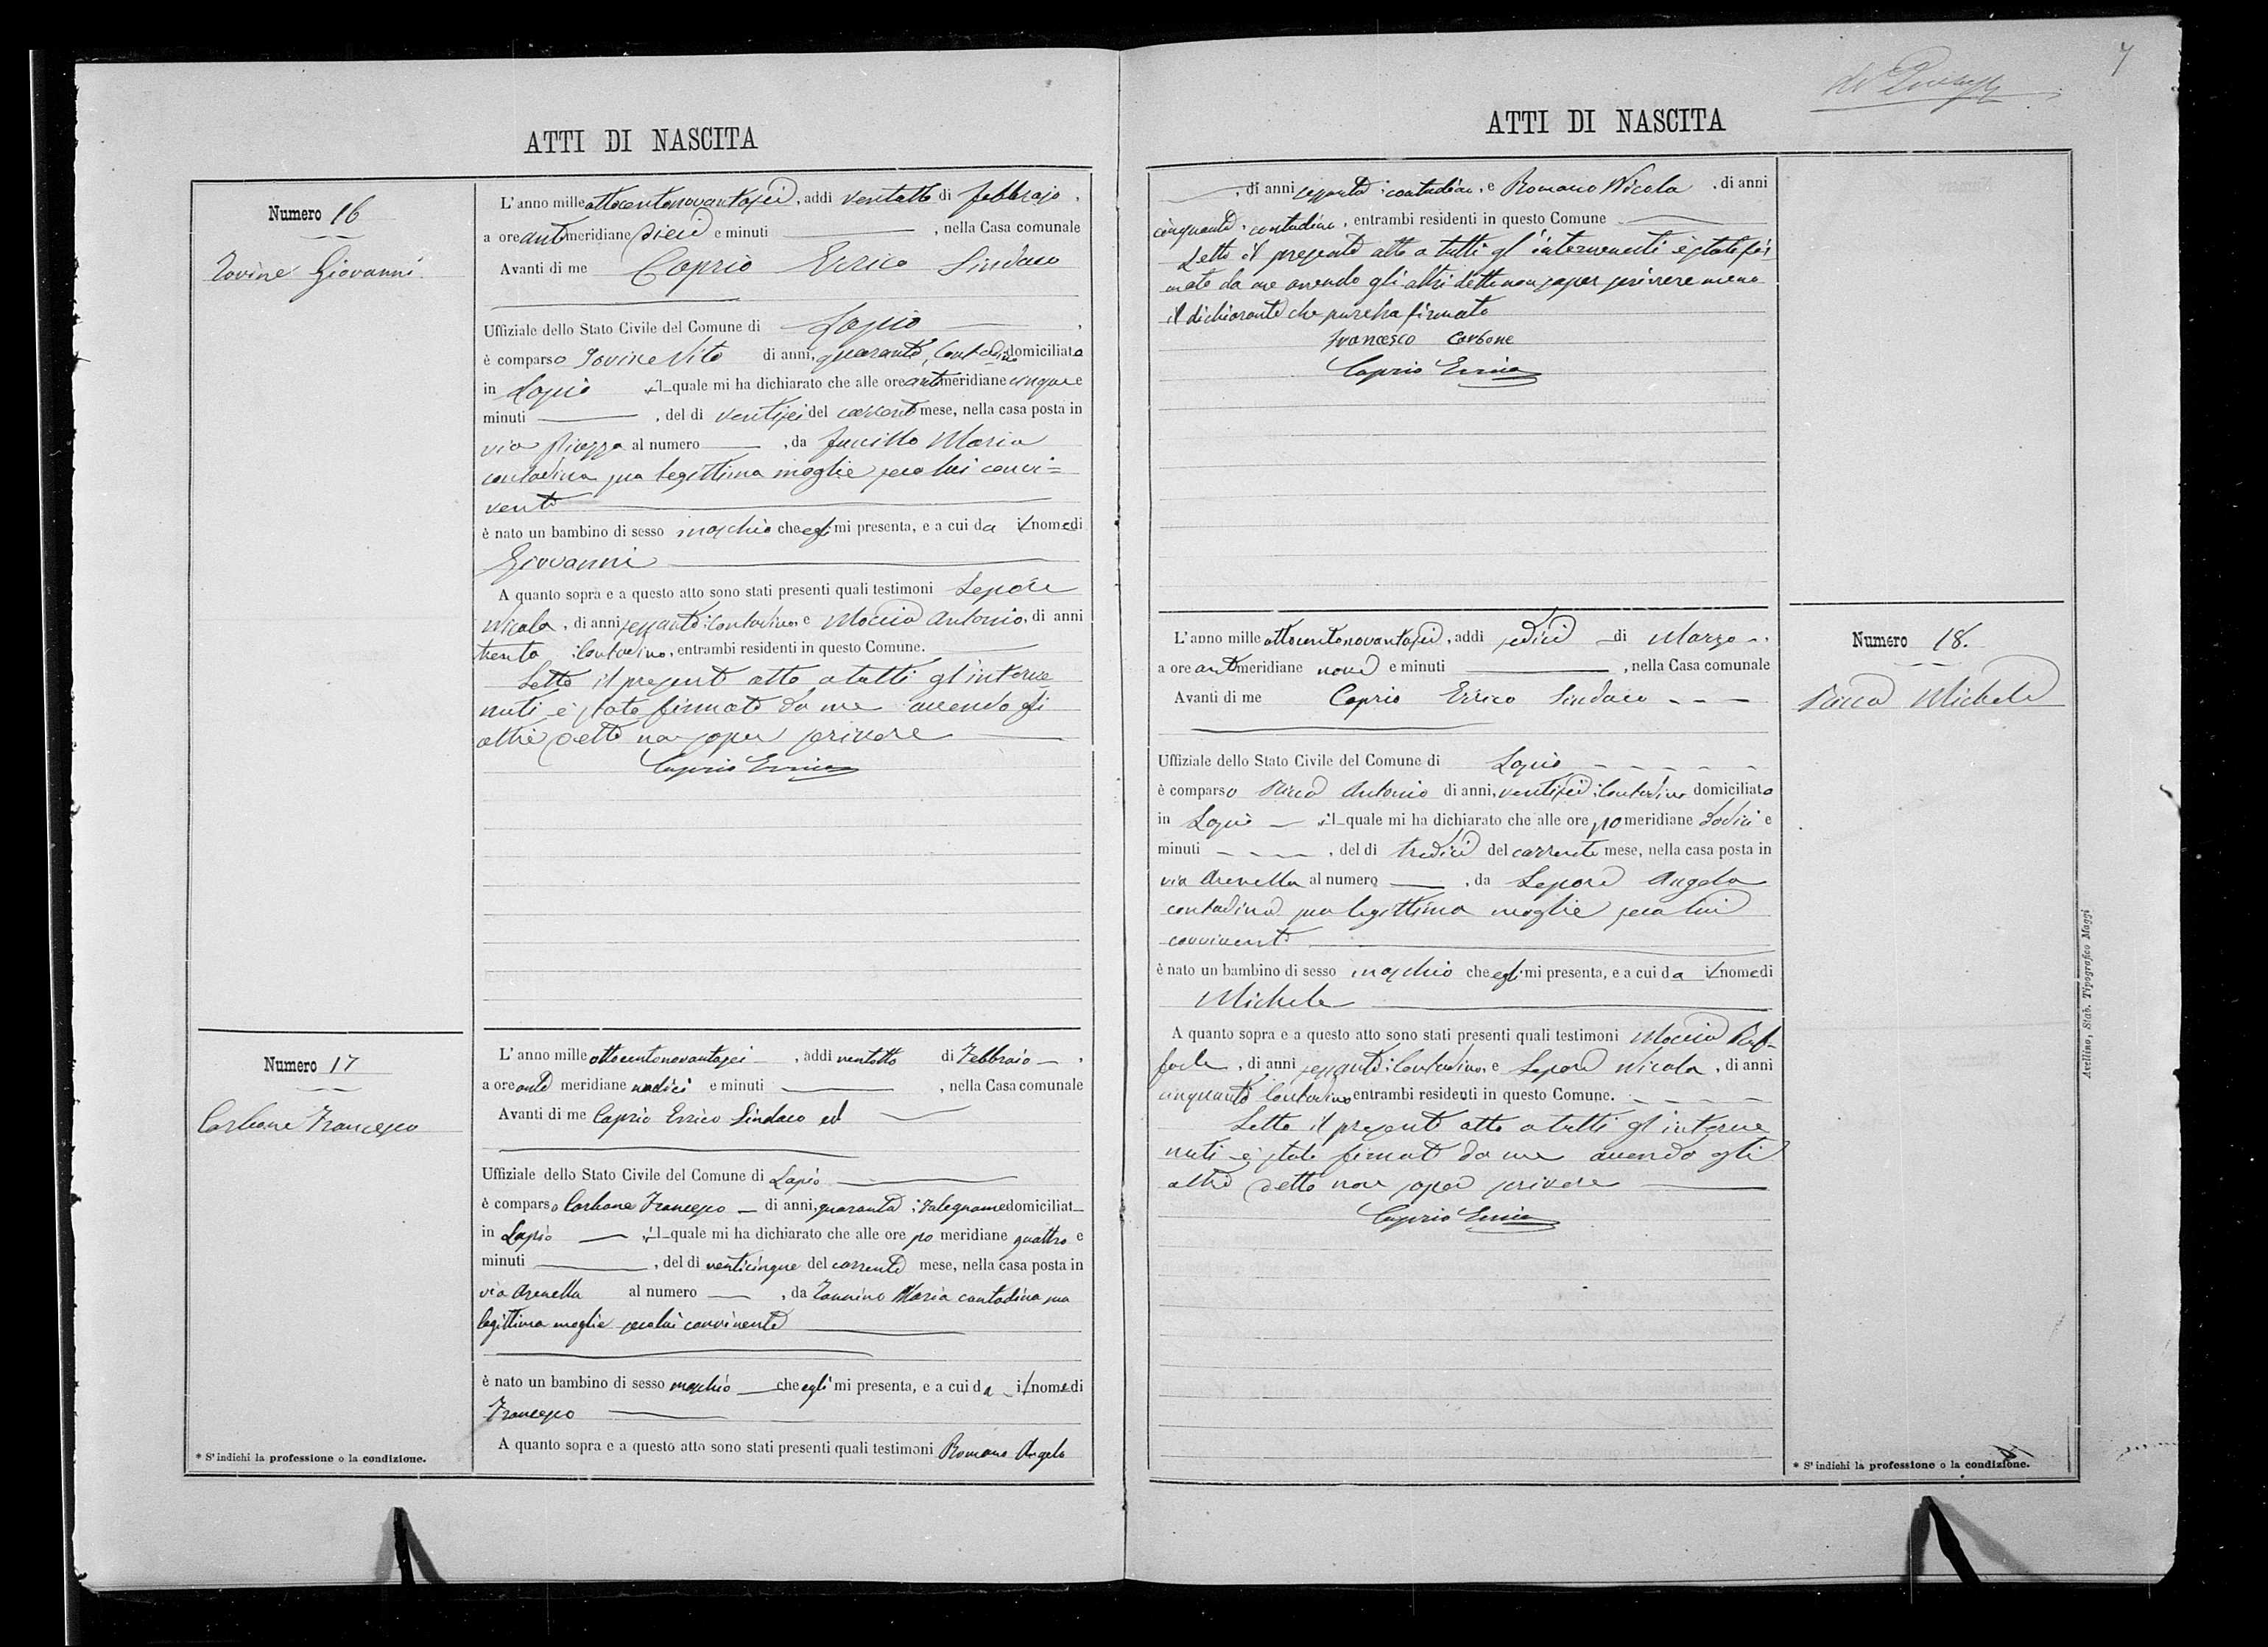 7
ATTI DI NASCITA
Numero 16
Iovine Giovanni
L'anno mille ottocentonovantasei, addi ventotto di febbrajo,
a ore antimeridiane dieci e minuti , nella Casa comunale
Avanti di me Caprio Errico Sindaco
Uffiziale dello Stato Civile del Comune di Lapio ,
è comparso Iovine Vito di anni, quaranta, Contadino domiciliato
in Lapio il quale mi ha dichiarato che alle ore antimeridiane cinque e
minuti , del di ventisei del corrente mese, nella casa posta in
via Piazza al numero , da Maria
contadina sua legittima moglie seco lui convi=
vente
è nato un bambino di sesso maschio che egli mi presenta, e a cui da il nome di
Giovanni
A quanto sopra e a questo atto sono stati presenti quali testimoni Lepore
Nicola, di anni sessanta, Contadino, e Moccia Antonio, di anni
trenta Contadino, entrambi residenti in questo Comune.
Letto il presente atto a tutti gl'interve=
nuti è stato firmato da me avendo gli
altri detto non saper scrivere
Caprio Errico
Numero 17
Carbone Francesco
L'anno mille ottocentonovantasei , addi ventotto di Febbraio ,
a ore ante meridiane undici e minuti , nella Casa comunale
Avanti di me Caprio Errico Sindaco ed
Uffiziale dello Stato Civile del Comune di Lapio
è comparso Carbone Francesco di anni, quaranta, Falegname domiciliat
in Lapio il quale mi ha dichiarato che alle ore po meridiane quattro e
minuti , del di venticinque del corrente mese, nella casa posta in
via Arenella al numero , da Maria contadina sua
legittima moglie seco lui convivente
è nato un bambino di sesso maschio che egli mi presenta, e a cui da il nome di
Francesco
A quanto sopra e a questo atto sono stati presenti quali testimoni Romano Angelo
* S'indichi la professione o la condizione.
ATTI DI NASCITA
, di anni sessanta, contadino, e Romano Nicola, di anni
cinquanta, contadino, entrambi residenti in questo Comune
Letto il presente atto a tutti gl'intervenuti è stato fir
mato da me avendo gli altri detto non saper scrivere meno
il dichiarante che pure ha firmato
Francesco Carbone
Caprio Errico
Numero 18.
Picca Michele
L'anno mille ottocentonovantasei, addi sedici di Marzo,
a ore antimeridiane nove e minuti , nella Casa comunale
Avanti di me Caprio Errico Sindaco
Uffiziale dello Stato Civile del Comune di Lapio
è comparso Picca Antonio di anni, ventisei, Contadino domiciliato
in Lapio il quale mi ha dichiarato che alle ore pomeridiane dodici e
minuti , del di tredici del corrente mese, nella casa posta in
via Arenella al numero , da Lepore Angela
contadina sua legittima moglie seco lui
convivente
è nato un bambino di sesso maschio che egli mi presenta, e a cui da il nome di
Michele
A quanto sopra e a questo atto sono stati presenti quali testimoni Moccia Raf-
faele, di anni sessanta, Contadino, e Lepore Nicola, di anni
cinquanta Contadino entrambi residenti in questo Comune.
Letto il presente atto a tutti gl'interve
nuti è stato firmato da me avendo gli
altri detto non saper scrivere
Caprio Errico
* S'indichi la professione o la condizione.
Avellino, Stab. Tipografico Maggi